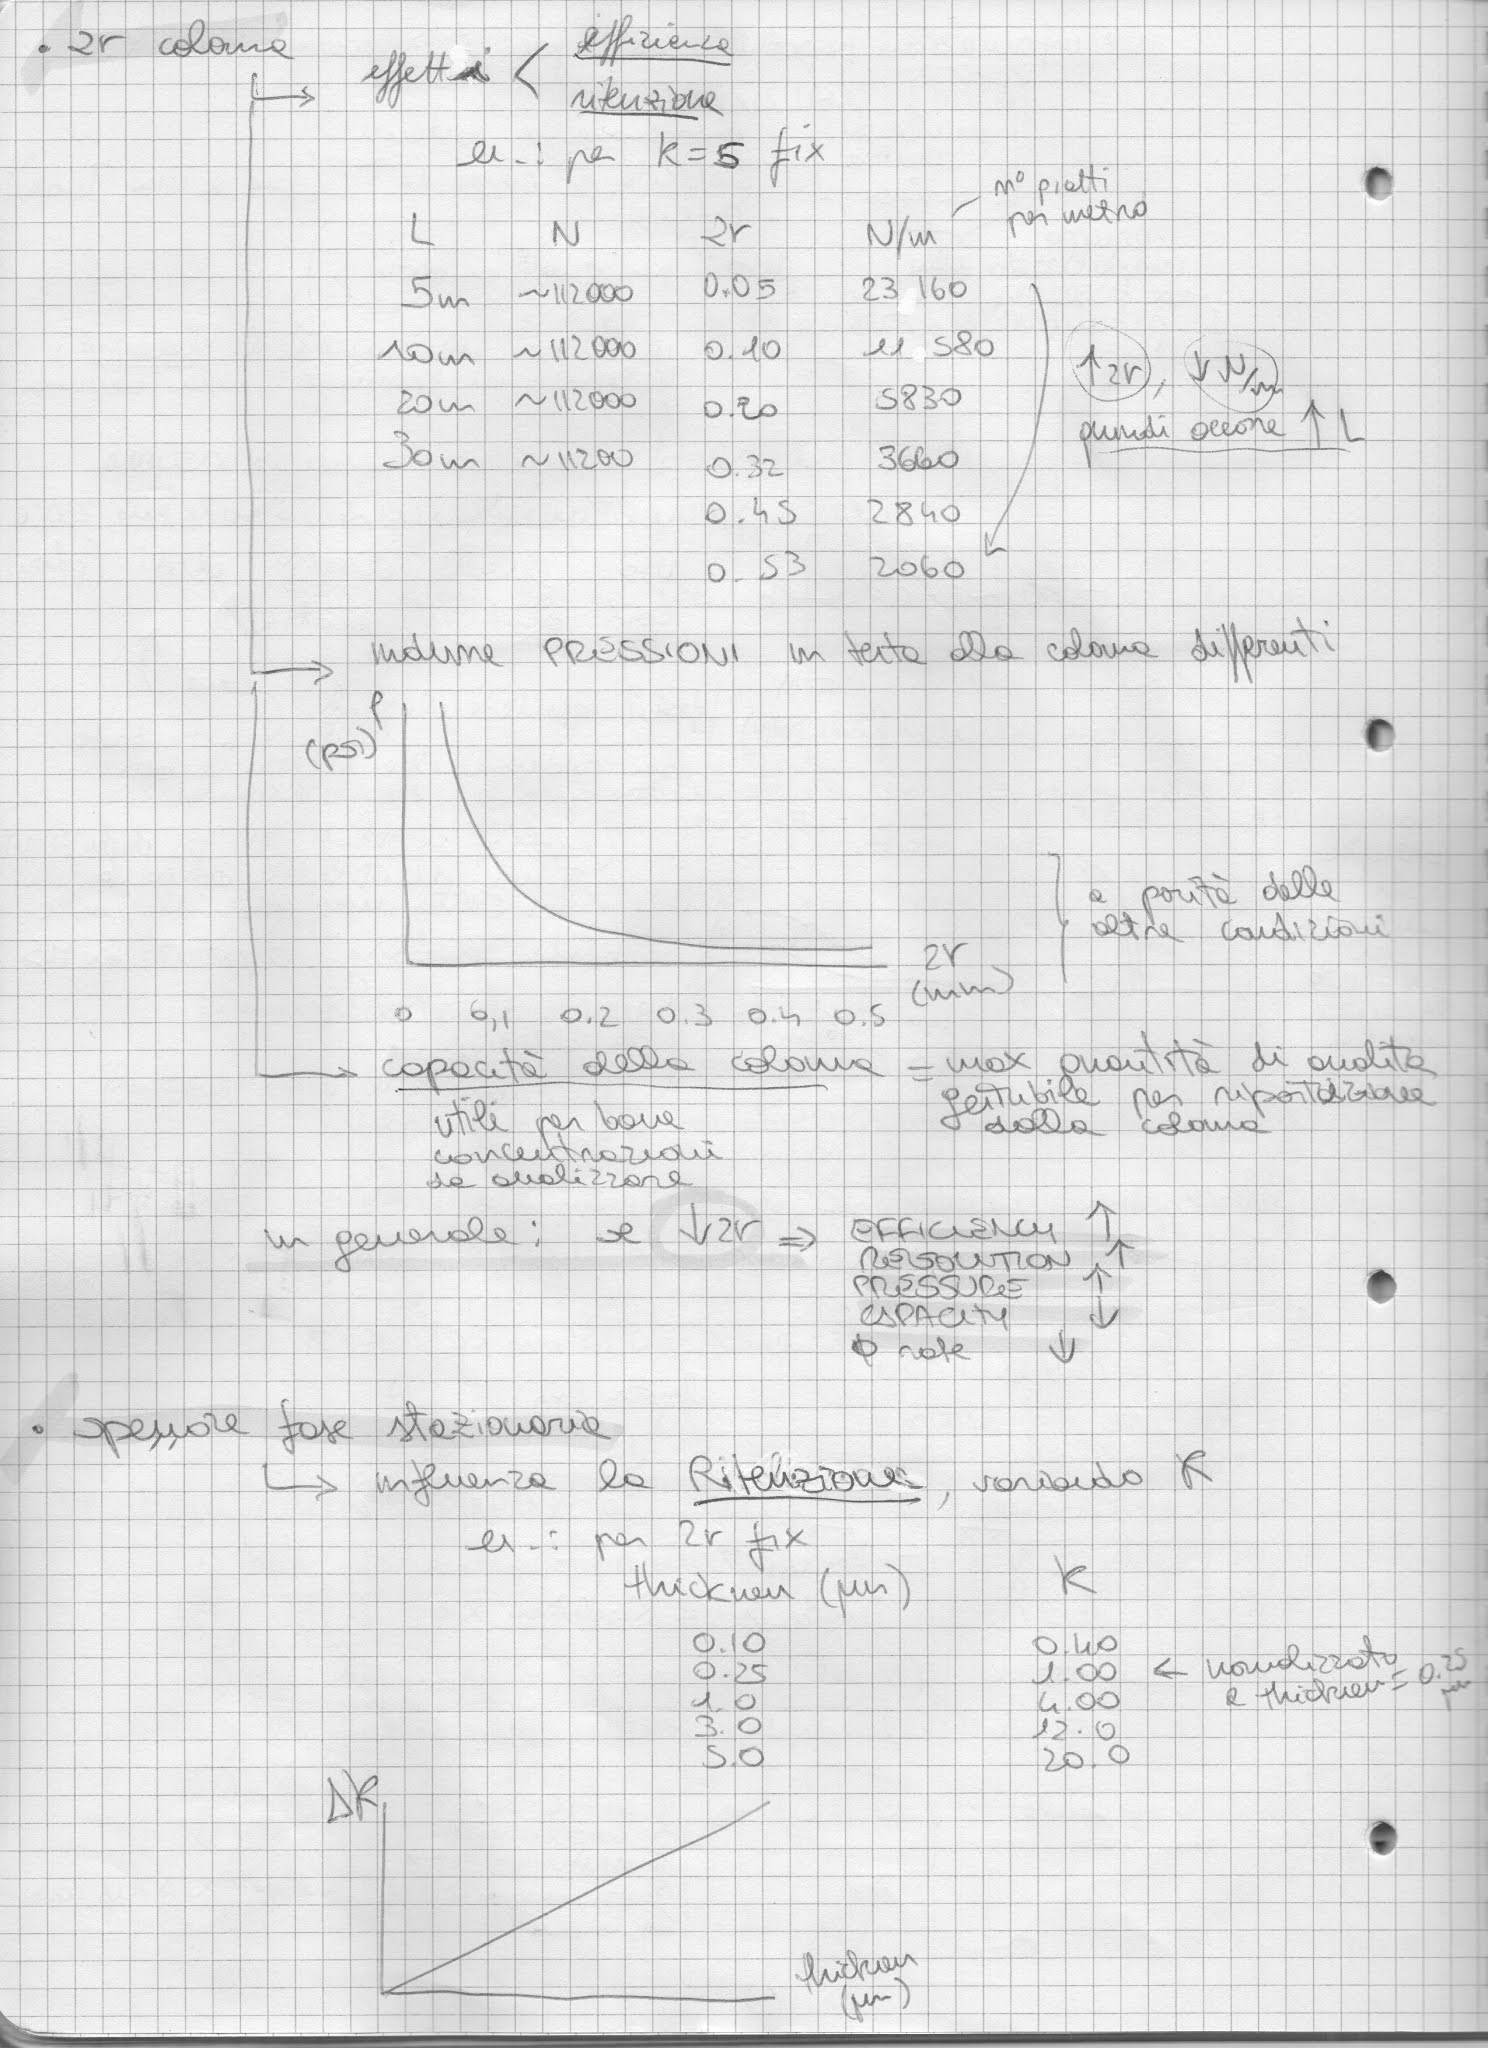 • 2r colonna
effetti < efficienza
ritenzione
es.: per K=5 fix
n° piatti
per metro
L N 2r N/m
5m ~112000 0.05 23 160
10m ~112000 0.10 11.580
20m ~112000 0.20 5830
30m ~11200 0.32 3660
0.45 2840
0.53 2060
↑2r, ↓N/m
quindi occorre ↑ L
induce PRESSIONI in testa alla colonna differenti
P
(psi)
2r
(mm)
0 0,1 0.2 0.3 0.4 0.5
a parità delle
altre condizioni
capacità della colonna = max quantità di analita
gestibile per ripartizione
dalla colonna
utili per basse
concentrazioni
da analizzare
in generale: se ↓2r ⇒ EFFICIENCY ↑
RESOLUTION ↑
PRESSURE ↑
CAPACITY ↓
Φ rate ↓
• spessore fase stazionaria
influenza la Ritenzione, variando K
es.: per 2r fix
thickness (μm) K
0.10 0.40
0.25 1.00 ← normalizzato
a thickness = 0.25 μm
1.0 4.00
3.0 12.0
5.0 20.0
ΔK
thickness
(μm)